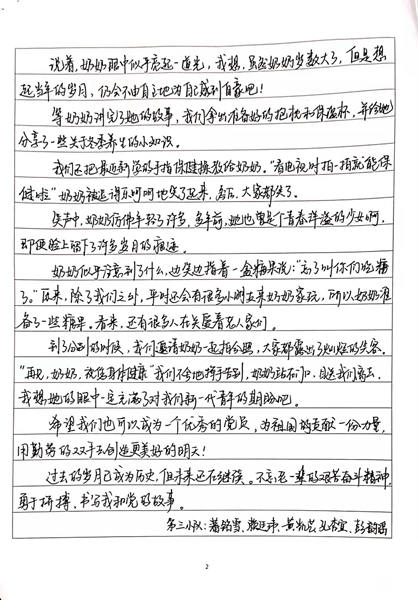 说着，奶奶眼中似乎亮起一道光，我想，虽然奶奶岁数大了，但是想
起当年的岁月，仍会不由自主地为自己感到自豪吧！
等奶奶讲完了她的故事，我们拿出准备好的抱枕和保温杯，并给她
分享了一些关于冬季养生的小知识。
我们还把最近新学的手指保健操教给奶奶。“看电视时拍一拍就能保
健啦”奶奶被逗得乐呵呵地笑了起来，大家都笑了。
笑声中，奶奶仿佛年轻了许多，多年前，她也曾是个青春洋溢的少女啊，
即便脸上留下了许多岁月的痕迹。
奶奶似乎注意到了什么，边笑边指着一盒糖果说：“忘了叫你们吃糖
了。”原来，除了我们之外，平时还会有很多小朋友来奶奶家玩，所以奶奶准
备了一些糖果。看来，还有很多人在关爱着老人家们。
到了分别的时候，我们邀请奶奶一起拍合照，大家都露出了灿烂的笑容。
“再见，奶奶，祝您身体健康”我们不舍地挥手告别，奶奶站在门口，目送我们离去，
我想她的眼中一定充满了对我们新一代青年的期盼吧。
希望我们也可以成为一个优秀的党员，为祖国贡献一份力量，
用勤劳的双手去创造更美好的明天！
过去的岁月已成为历史，但未来还在继续。不忘老一辈的艰苦奋斗精神，
勇于拼搏，书写我和党的故事。
第三小队：
2